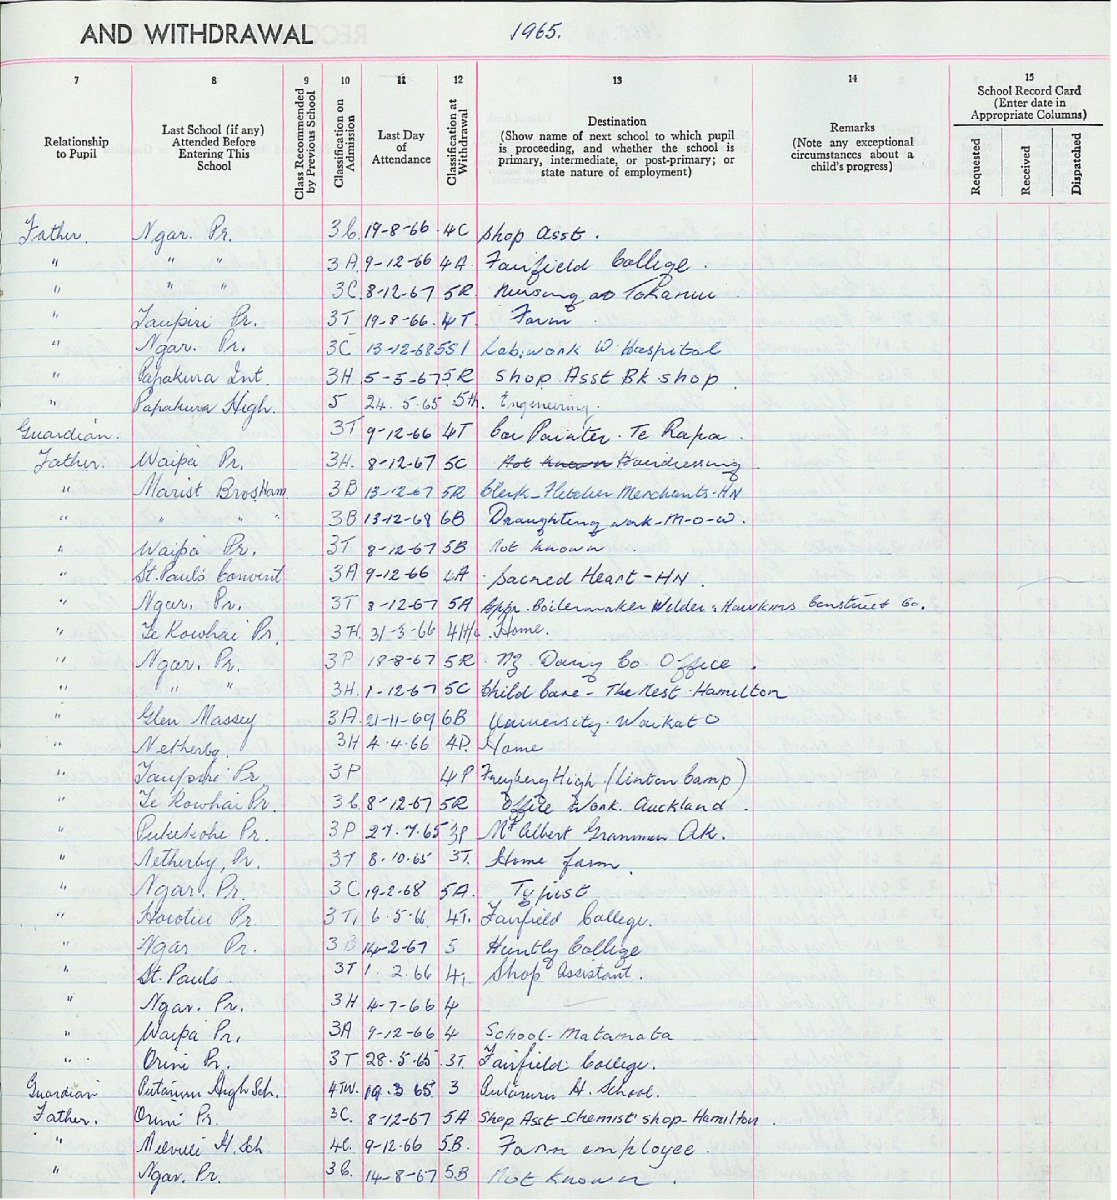 AND WITHDRAWAL 1965.
7 8 9 10 11 12 13 14 15
Relationship to Pupil
Last School (if any) Attended Before Entering This School
Class Recommended by Previous School
Classification on Admission
Last Day of Attendance
Classification at Withdrawal
Destination (Show name of next school to which pupil is proceeding, and whether the school is primary, intermediate, or post-primary; or state nature of employment)
Remarks (Note any exceptional circumstances about a child's progress)
School Record Card (Enter date in Appropriate Columns)
Requested
Received
Dispatched
Father. Ngar. Pr. 19-8-66 4C Shop Asst.
" " " 3A 9-12-66 4A Fairfield College.
" " " 3C 8-12-67 5R Nursing at Tokanui
" Taupiri Pr. 3T 19-8-66. 4T. Farm
" Ngar. Pr. 3C 13-12-68 Lab. work W. Hospital
" Papakura Int. 3H. 5-5-67 5R Shop Asst Bk shop.
" Papakura High. 5 24.5.65 5H. Engineering.
Guardian. 3T 9-12-66 4T Car Painter. Te Rapa.
Father. Waipa Pr. 3H. 8-12-67 5C Not known Hairdressing
" Marist Bros Ham 3B 13-12-67 5R Clerk-Fletcher Merchants-HN
" " " " 3B 6B Draughting work-M-O-W.
" Waipa Pr. 3T 8-12-67 5B Not known
" St. Paul's Convent 3A 9-12-66 4A Sacred Heart-HN.
" Ngar. Pr. 3T 8-12-67 5A Appr. Boilermaker Welder, Hawkins Construct Co.
" Te Kowhai Pr. 3H. 31-3-66 Home.
" Ngar. Pr. 3P 18-8-67 5R NZ. Dairy Co. Office.
" " " 3H. 1-12-67 5C Child Care - The Nest. Hamilton
" Glen Massey 3A 21-11-69 6B University. Waikato
" Netherby. 3H 4.4.66 Home
" Pr 3P 4P Freyberg High (Linton Camp)
" Te Kowhai Pr. 8-12-67 5R Office Work. Auckland.
" Pukekohe Pr. 3P 27.7.65 3P Mt Albert Grammar Ak.
" Netherby, Pr. 3T 8.10.65 3T. Home farm.
" Ngar. Pr. 3C 19-2-68 5A. Typist
" Horotiu Pr. 3T, 6.5.66 4T. Fairfield College.
" Ngar Pr. 3B 14-2-67 5 Huntly College
" St. Pauls 3T 1.2.66 Shop Assistant.
" Ngar. Pr. 3H 4-7-66 4
" Waipa Pr, 3A 9-12-66 4 School-Matamata
" Orini Pr. 3T 28.5.65 3T. Fairfield College.
Guardian High Sch. 4TW. 19.3 65. 3 H. School.
Father. Orini Pr. 3C. 8-12-67 5A Shop Asst Chemist shop Hamilton.
" Melville H. Sch 4C. 9-12-66 5B. Farm employee.
" Ngar. Pr. 14-8-67 5B Not known.